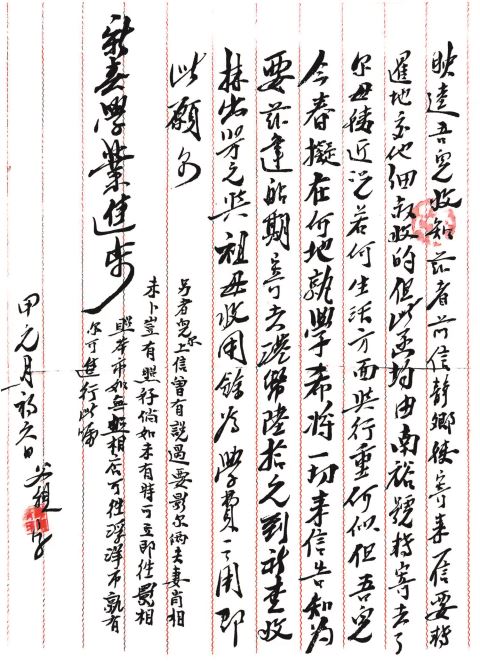 映達吾兒收知茲者前信靜鄉接寄來信要將
暹地交他細叔收的但此函均由南裕號轉寄去了
尔母接近況若何生活方面與行重何似但吾兒
今春擬在何地就學希將一切來信告知為
要茲逢船期寄去港幣陸拾元到祈查收
抹出 元與祖母收用餘為學費之用即
此願尔
新春學業進步
另者兒尔上信曾有說過要影尔倆夫妻肖相
未卜豈有照好倘如未有時可立即往影相
照本市如無影相店可往浮洋市就有
尔可進行此囑
甲元月初六日 父